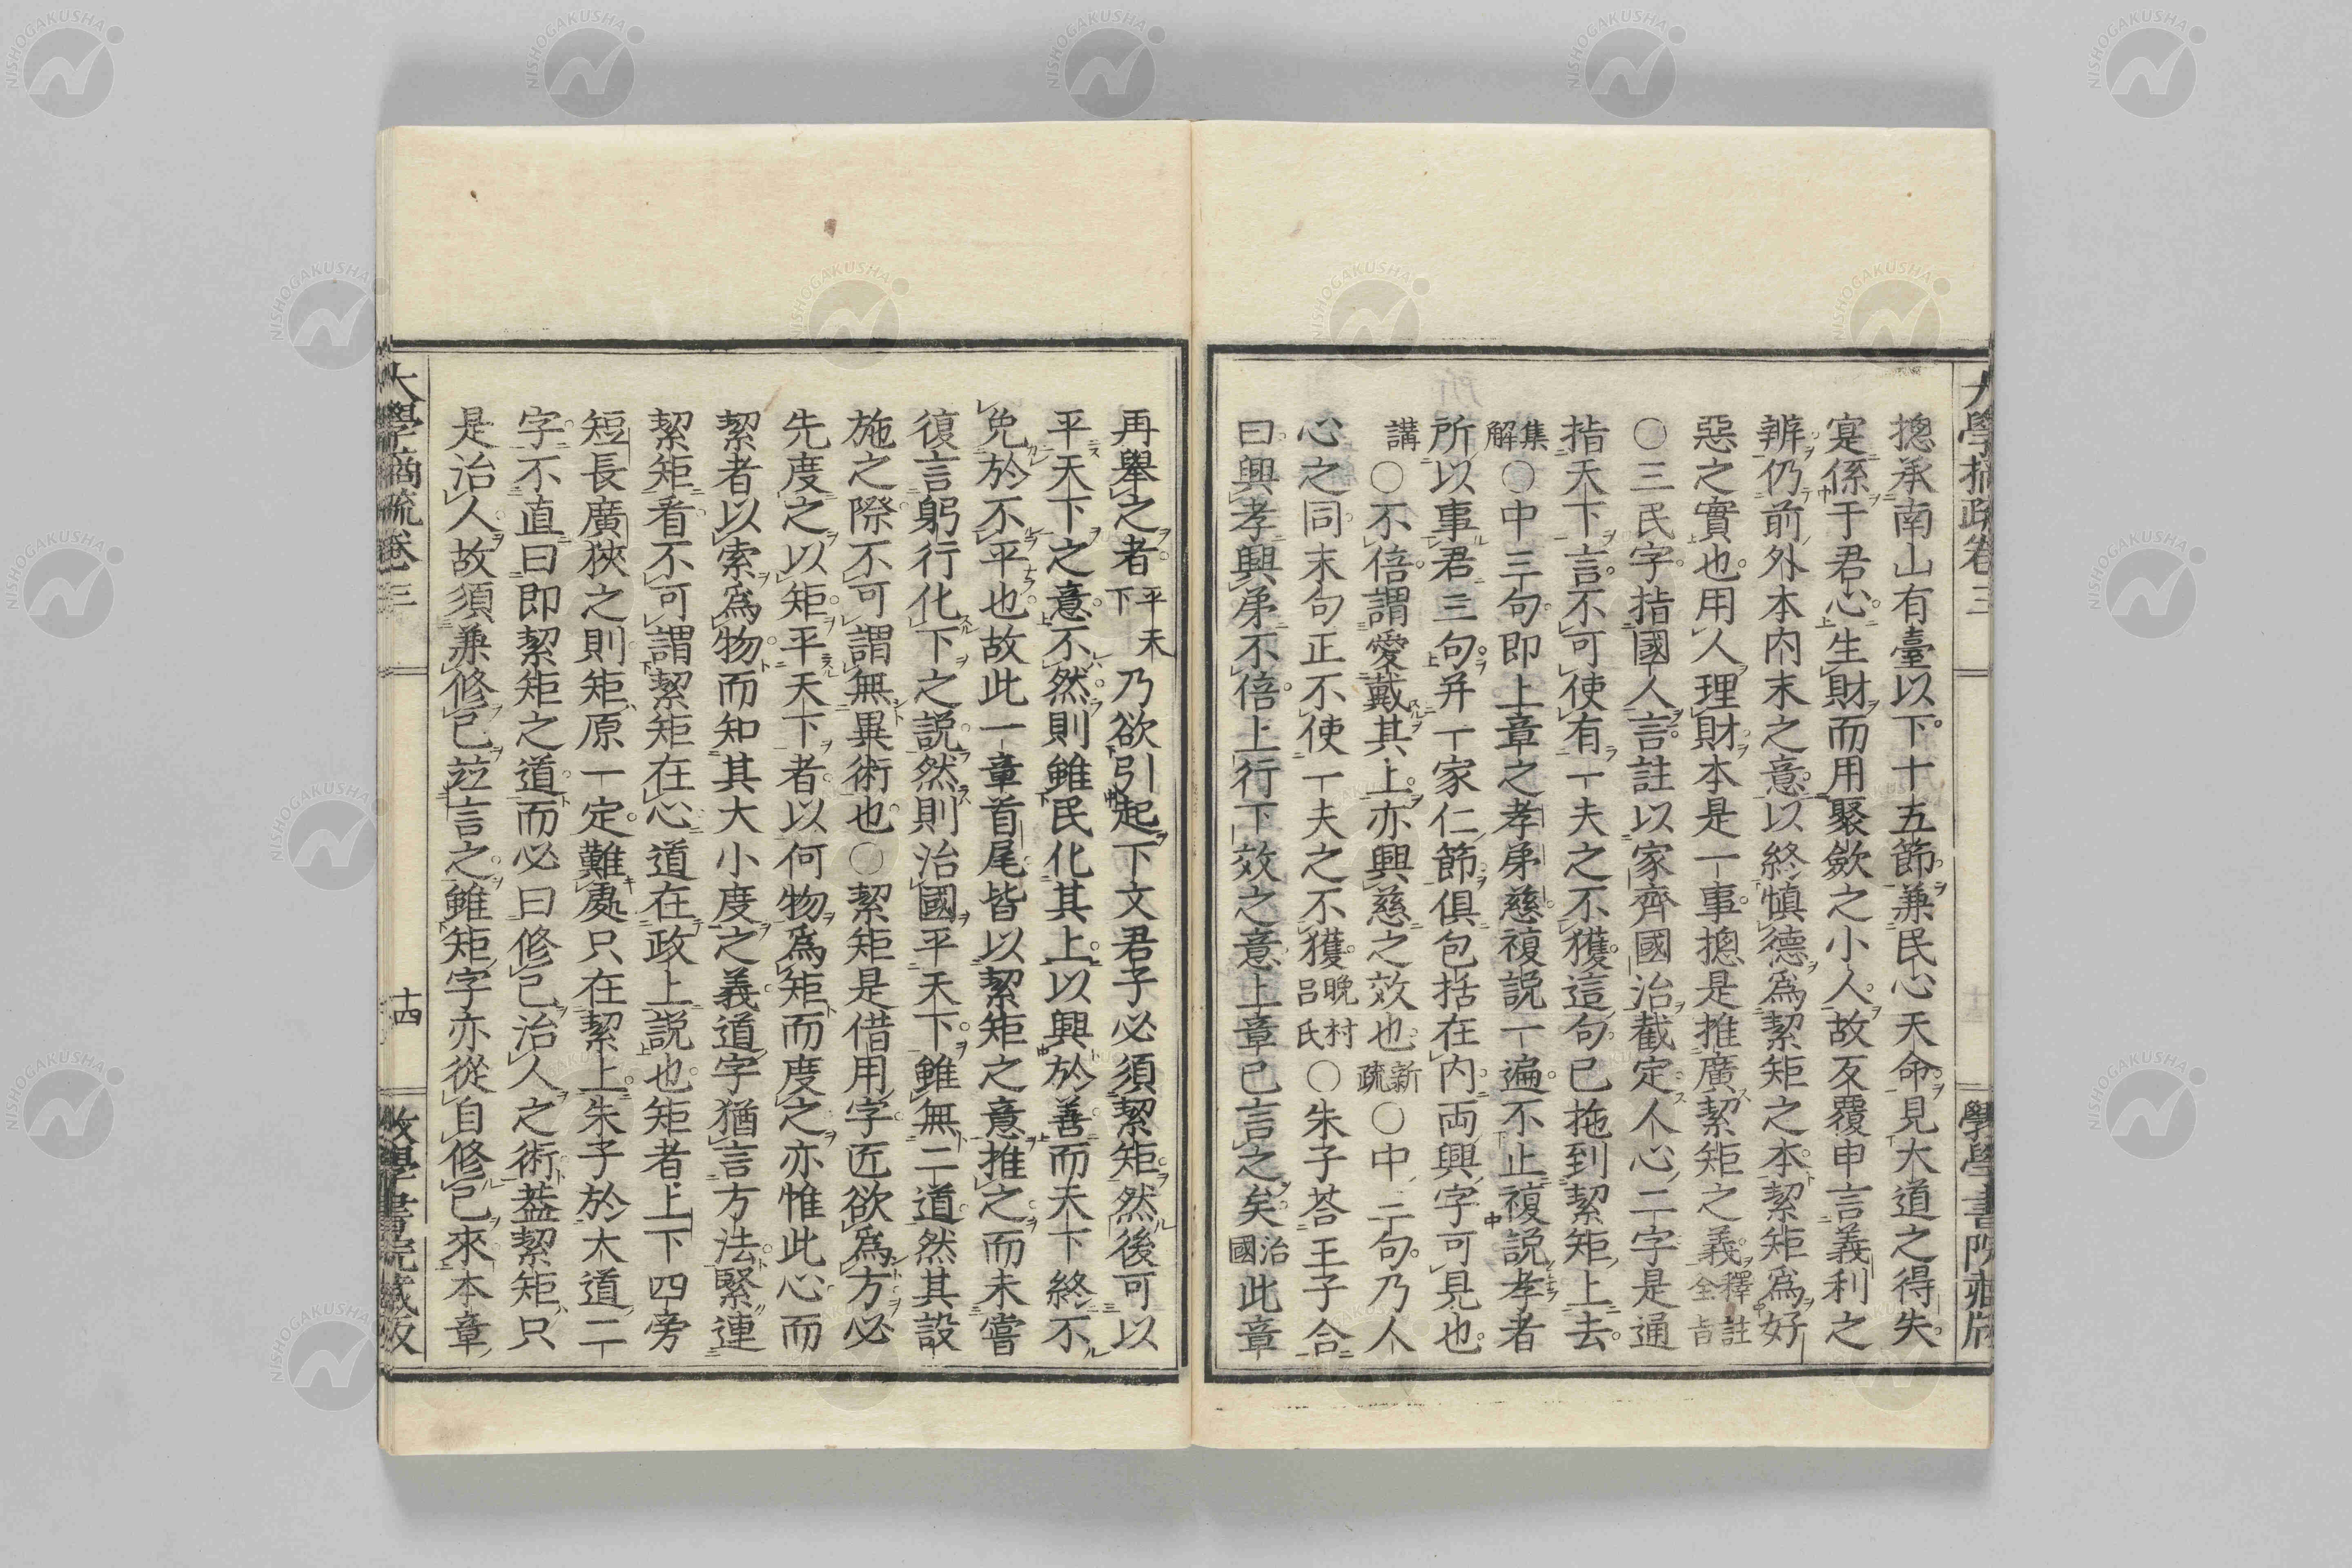 大學摘疏卷三
斆學書院藏版
揔承南山有臺以下十五節兼民心天命見大道之得失
寔係于君心生財而用聚斂之小人故反覆申言義利之
辨仍前外本內末之意以終愼德爲絜矩之本絜矩爲好
惡之實也用人理財本是一事揔是推廣絜矩之義釋註全旨
〇三民字指國人言註以家齊國治截定人心二字是通
指天下言不可使有一夫之不獲這句已拖到絜矩上去
集解〇中三句即上章之孝弟慈複説一遍不止複説孝者
所以事君三句并一家仁節俱包括在内両興字可見也
講〇不倍謂愛戴其上亦興慈之效也新疏〇中二句乃人
心之同末句正不使一夫之不獲晚村呂氏〇朱子荅王子合
曰興孝興弟不倍上行下效之意上章已言之矣治國此章
再舉之者平天下乃欲引起下文君子必須絜矩然後可以
平天下之意不然則雖民化其上以興於善而天下終不
免於不平也故此一章首尾皆以絜矩之意推之而未嘗
復言躬行化下之説然則治國平天下雖無二道然其設
施之際不可謂無異術也〇絜矩是借用字匠欲爲方必
先度之以矩平天下者以何物爲矩而度之亦惟此心而
絜者以索爲物而知其大小度之義道字猶言方法緊連
絜矩看不可謂絜矩在心道在政上説也矩者上下四旁
短長廣狹之則矩原一定難處只在絜上朱子於大道二
字不直曰即絜矩之道而必曰修己治人之術蓋絜矩只
是治人故須兼修己竝言之雖矩字亦從自修己來本章
大學摘疏卷三
十四
斆學書院藏版
NISHOGAKUSHA